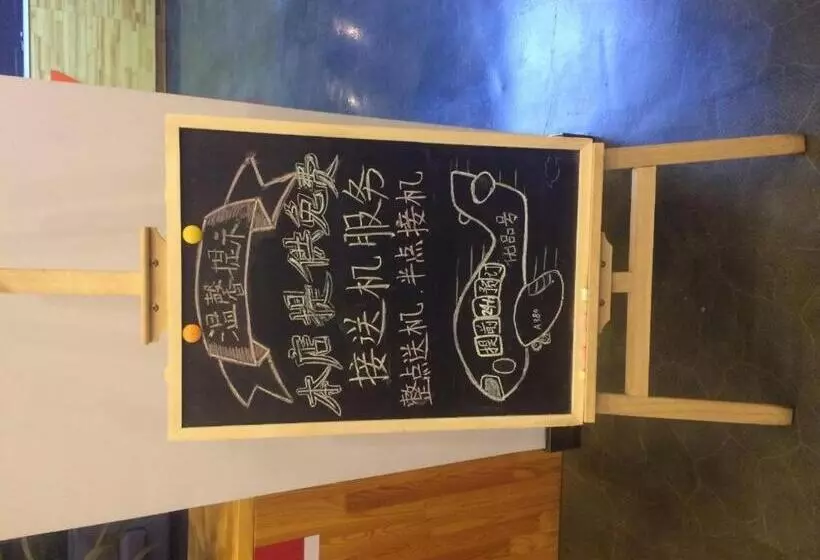 温馨提示
本店提供免费
接送机服务
整点送机.半点接机
提前预订
出品号
A380